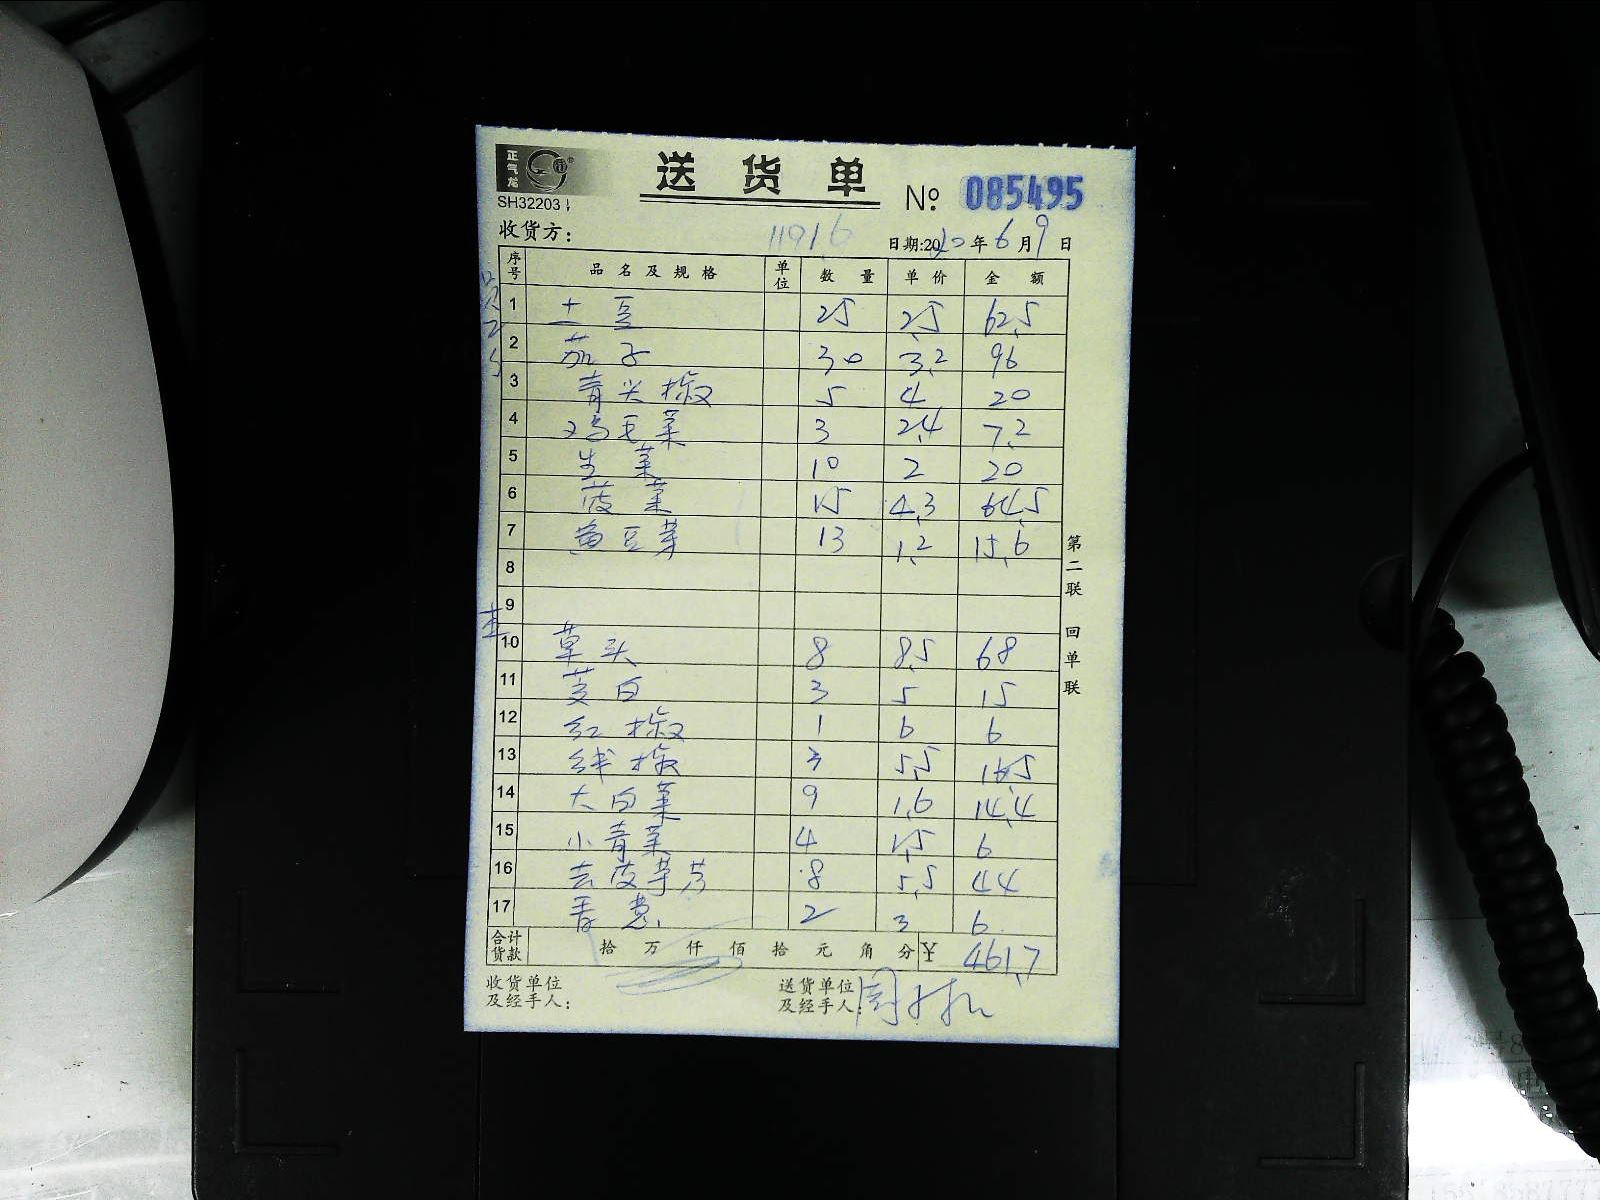 正气龙
送货单 № 085495
SH32203
收货方: 11916 日期:2020年6月9日
序号 品名及规格 单位 数量 单价 金额
1 土豆 25 2.5 62.5
2 茄子 30 3.2 96
3 青尖椒 5 4 20
4 鸡毛菜 3 2.4 7.2
5 生菜 10 2 20
6 菠菜 15 4.3 64.5
7 黄豆芽 13 1.2 15.6
8
9
10 草头 8 8.5 68
11 茭白 3 5 15
12 红椒 1 6 6
13 线椒 3 5.5 16.5
14 大白菜 9 1.6 14.4
15 小青菜 4 1.5 6
16 去皮芋艿 8 5.5 44
17 香葱 2 3 6
合计货款 拾万仟佰拾元角分 ¥ 461.7
收货单位及经手人: 送货单位及经手人:
第二联 回单联